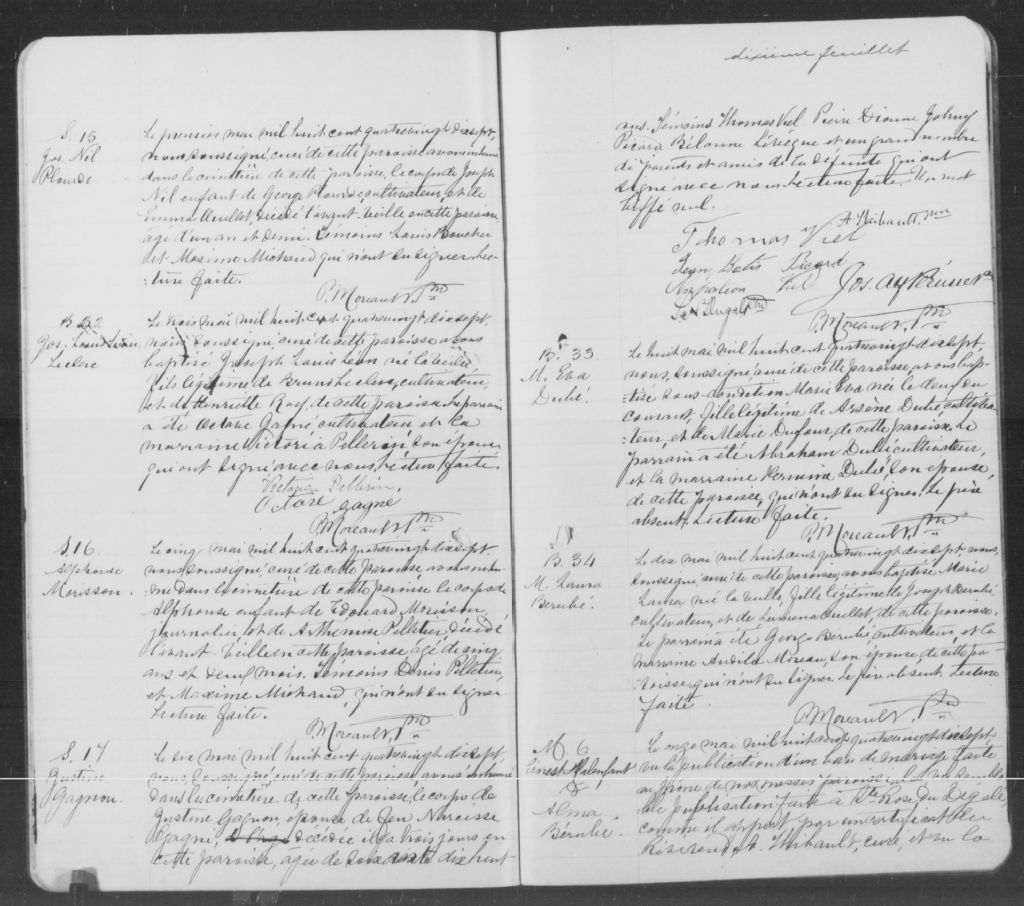 S. 15
Jos. Nil
Plourde
Le premier mai mil huit cent quatrevingt dixsept,
nous, soussigné, curé de cette paroisse avons inhumé
dans le cimetière de cette paroisse, le corps de Joseph
Nil enfant de George Plourde, cultivateur, et de
Emma Ouellet, décédé l'avant-veille en cette paroisse
agé d'un an et demi. Témoins Louis Boucher
et Maxime Michaud qui n'ont su signer. Lec-
-ture faite.
P. Moreault, Ptre
B 32
Jos. Louis Léon
Leclerc
Le trois mai mil huit cent quatrevingt dixsept,
nous, soussigné, curé de cette paroisse avons
baptisé Joseph Louis Léon né la veille
fils légitime de Bruno Leclerc, cultivateur,
et de Henriette Roy, de cette paroisse. Le parrain
a été Octave Gagné cultivateur et la
marraine Victoria Pellerin, son épouse
qui ont signé avec nous, lecture faite.
Victoria Pellerin.
Octave Gagne
P. Moreault, Ptre
S. 16
Alphonse
Morisson.
Le cinq mai mil huit cent quatrevingt dixsept
nous, soussigné, curé de cette paroisse avons inhu-
mé dans le cimetière de cette paroisse le corps de
Alphonse enfant de Edouard Morisson,
journalier, et de Arthémise Pelletier, décédé
l'avant veille en cette paroisse agé de cinq
ans et neuf mois. Témoins Denis Pelletier,
et Maxime Michaud, qui n'ont su signer
Lecture faite.
P. Moreault, Ptre
S. 17
Justine
Gagnon.
Le dix mai mil huit cent quatrevingt dixsept,
nous, soussigné, curé de cette paroisse, avons inhumé
dans le cimetière de cette paroisse, le corps de
Justine Gagnon, épouse de feu Narcisse
Gagné, décédée il y a trois jours en
cette paroisse, agée de dix huit
dixième feuillet
ans. Témoins Thomas Viel Pierre Dionne Johnny
Picard Bélonne Lévèque et un grand nombre
de parents et amis de la défunte qui ont
signé avec nous lecture faite. Un mot
biffé nul.
A. Thibault, ptre
Thomas Viel
Jean Batis Picard
Napoleon Viel
Jos. A
P. Moreault, Ptre
B. 33.
M. Eva
Dubé.
Le huit mai mil huit cent quatrevingt dixsept
nous, soussigné, curé de cette paroisse, avons bap-
-tisé sous condition Marie Eva née le deux du
courant, fille légitime de Arsène Dubé cultiva-
-teur, et de Marie Dufour, de cette paroisse. Le
parrain a été Abraham Dubé cultivateur,
et la marraine Hermina Dubé, son épouse,
de cette paroisse, qui n'ont su signer. Le père
absent. Lecture faite.
P. Moreault, Ptre
B. 34
M. Laura
Berubé.
Le dix mai mil huit cent quatrevingt dixsept, nous,
soussigné, curé de cette paroisse, avons baptisé Marie
Laura née la veille fille légitime de Joseph Berubé
cultivateur, et de Ouellet, de cette paroisse.
Le parrain a été George Berubé, cultivateur, et la
marraine Moreau, son épouse, de cette pa-
roisse qui n'ont su signer. Le père absent. Lecture
faite.
P. Moreault, Ptre
M. 6
Ernest Malenfant
&
Alma
Bérubé.
Le onze mai mil huit cent quatrevingt dixsept
vu la publication d'un ban de mariage faite
au prône de nos messes paroissiales
publication faite à Ste Rose du Dégelé
comme il appert par un certificat du
Révérend A. Thibault, curé, et vu la